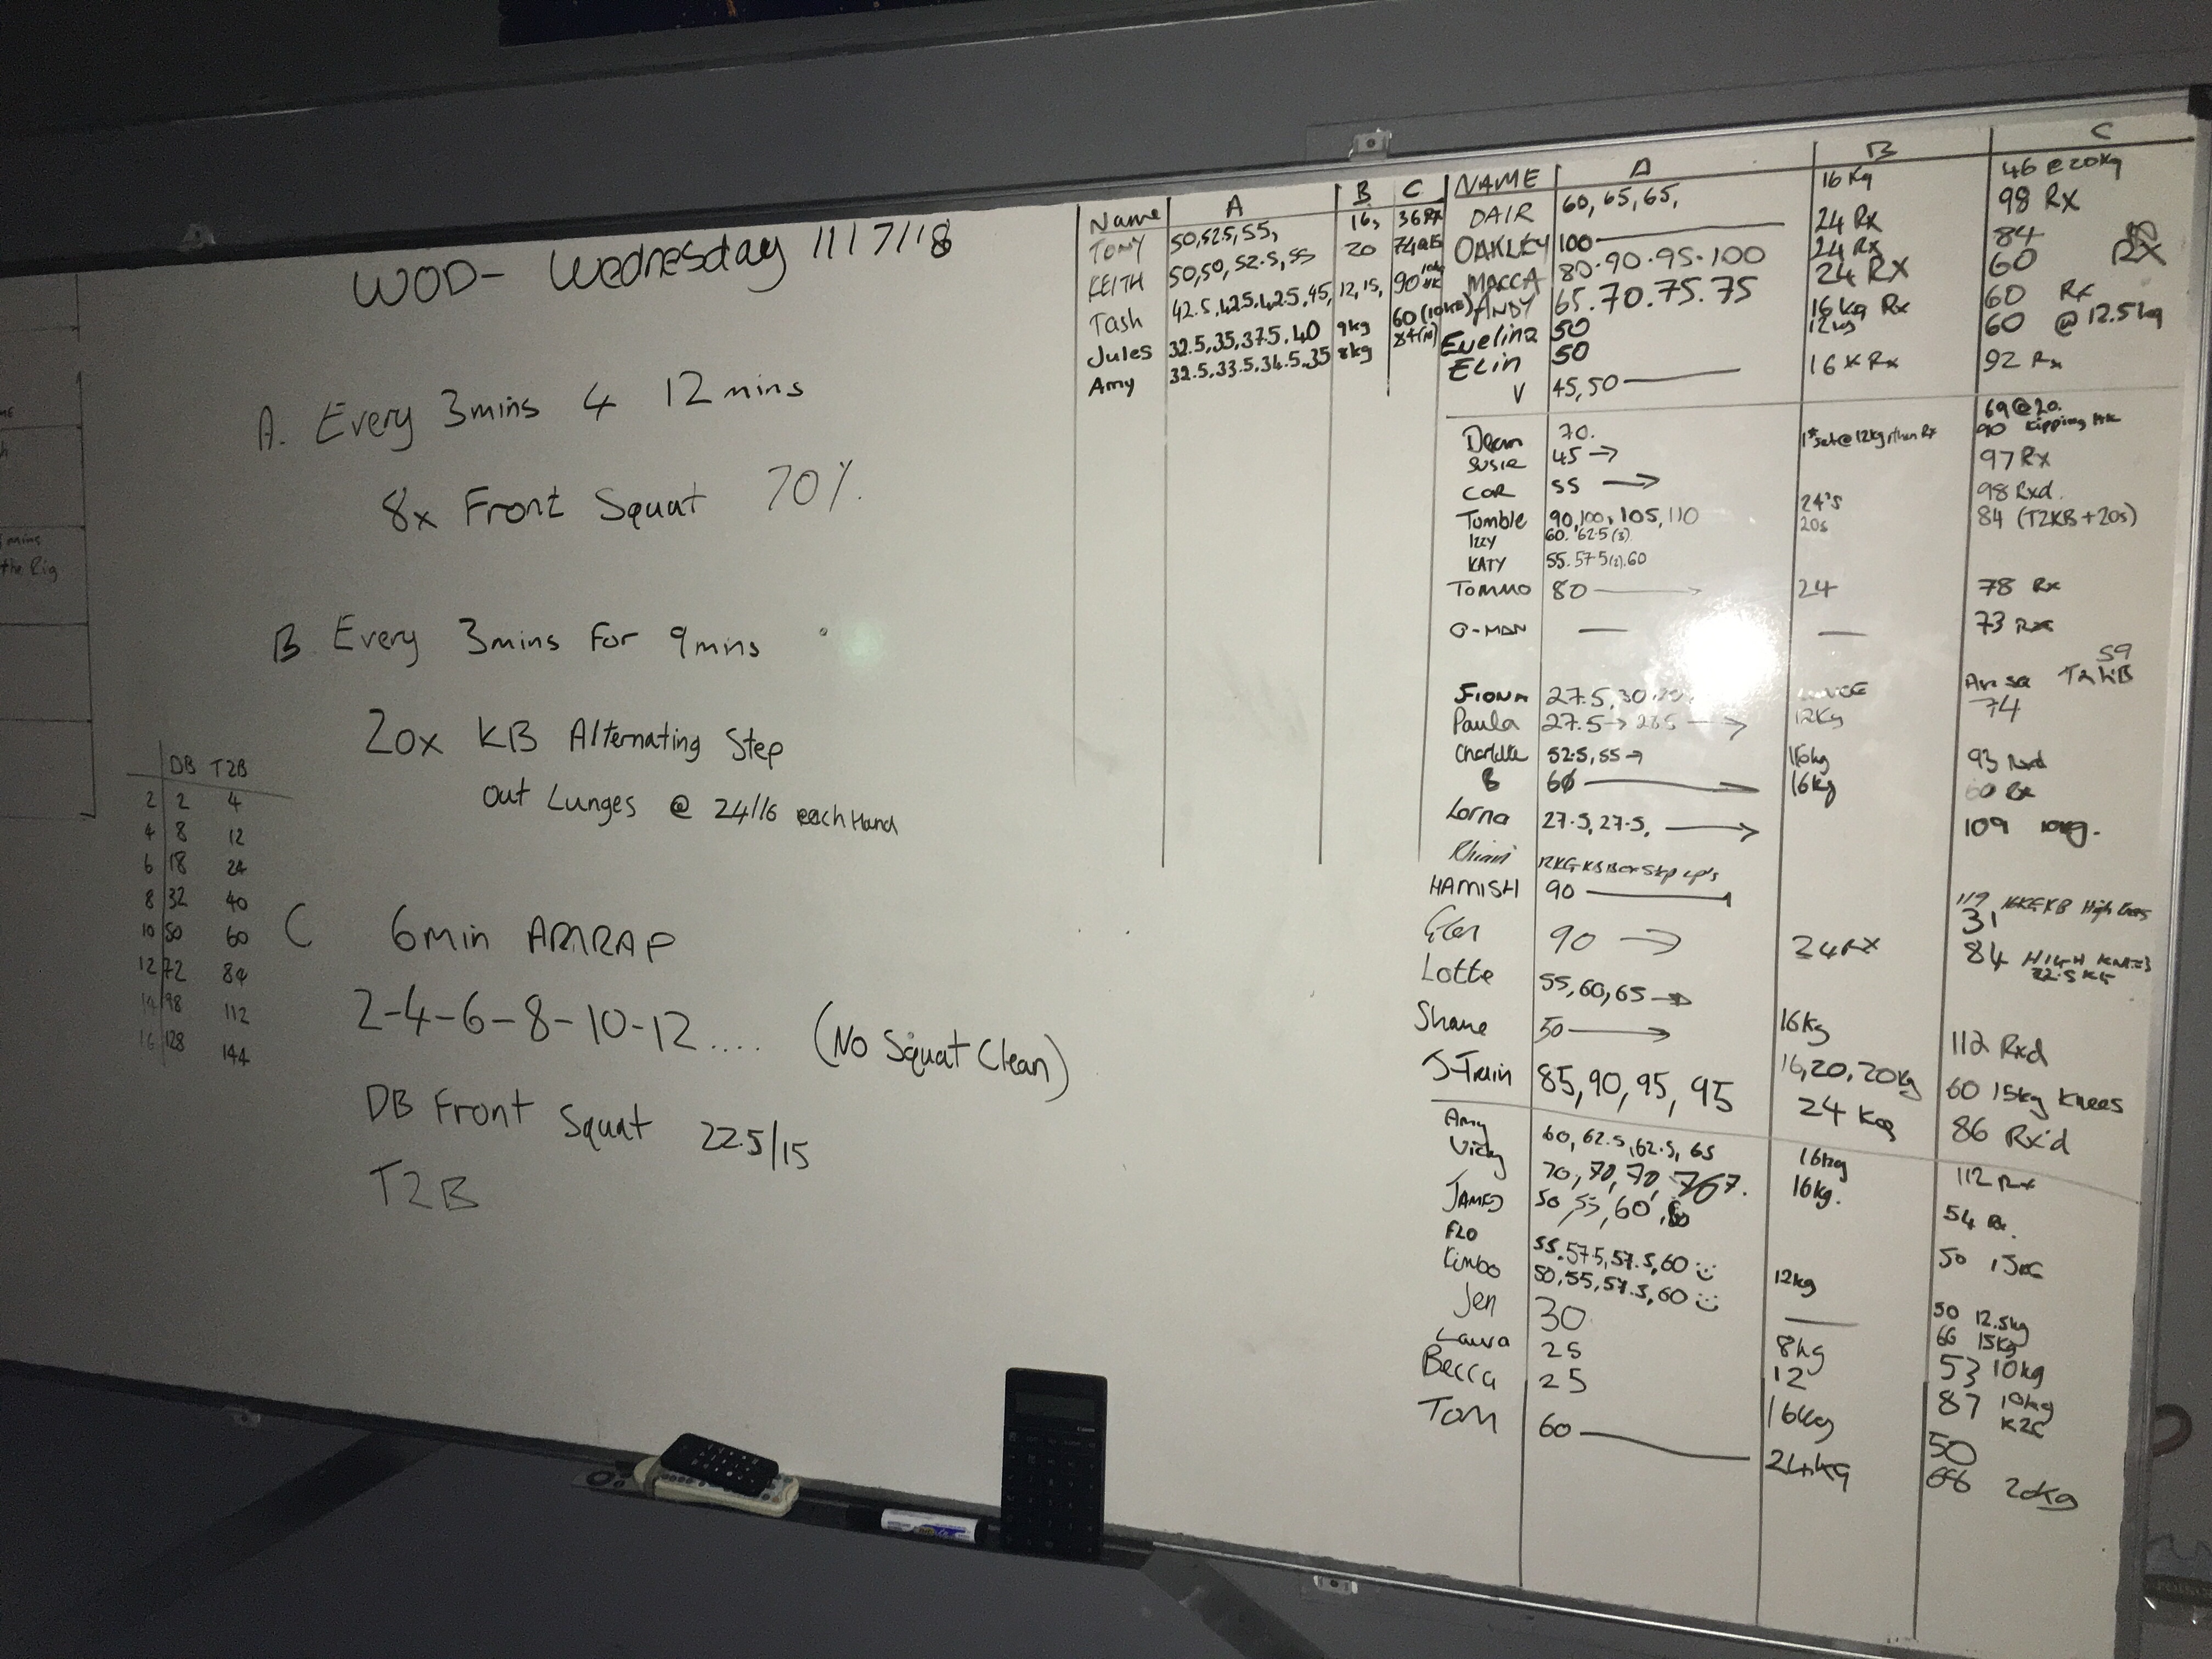 WOD- Wednesday 11/7/18
A. Every 3mins 4 12mins
8x Front Squat 70%
B Every 3mins For 9mins
20x KB Alternating Step
out Lunges @ 24/16 each Hand
C 6min AMRAP
2-4-6-8-10-12.... (No Squat Clean)
DB Front Squat 22.5/15
T2B
DB T2B
2 2 4
4 8 12
6 18 24
8 32 40
10 50 60
12 72 84
14 98 112
16 128 144
the Rig
Name A B C
TONY 50,52.5,55, 16, 36 RX
KEITH 50,50,52.5,55 20
Tash 42.5,42.5,42.5,45, 12,15, 90
Jules 32.5,35,37.5,40 9kg 60 (10KG)
Amy 32.5,33.5,34.5,35 8kg
NAME A B C
DAIR 60,65,65, 16 Kg 46 @ 20kg
OAKLEY 100 24 Rx 98 Rx
MACCA 80.90.95.100 24 Rx 84
ANDY 65.70.75.75 24 RX 60 RX
Evelina 50 16kg Rx 60 Rx
Elin 50 12kg 60 @ 12.5kg
V 45,50 16 Rx 92 Rx
Dean 70. 69@20.
Susie 45 → 1st set @ 12kg then Rx 90 kipping HK
COR 55 → 97 Rx
Tumble 90,100,105,110 24's 98 Rxd.
Izzy 60. 62.5(3) 20s 84 (T2KB+20s)
KATY 55.57.5(2).60
TOMMO 80 → 24 78 Rx
G-MAN — — 73 Rx
59
Fiona 27.5,30
Paula 27.5→ 28.5 → 12Kg 74
Charlotte 52.5,55→ 16kg 93 Rxd
B 60 → 16kg 60 Rx
Lorna 27.5,27.5, → 109 10kg.
Rhian 12KG KB Box Step up's
HAMISH 90 119 16KG KB High Knees
Glen 90 → 24 RX 31
Lotte 55,60,65→ 84 HIGH KNEES
22.5 KG
Shane 50 → 16kg 112 Rxd
J-Train 85,90,95,95 16,20,20kg 60 15kg Knees
24 Kgs 86 Rx'd
Amy 60,62.5,62.5,65 16kg 112 Rx
Vicky 70,70,70, 16kg. 54 Rx.
JAMES 50,55,60,60
FLO 55.57.5,57.5,60 :) 12kg 50
Kimbo 50,55,57.5,60 :) — 50 12.5kg
Jen 30 66 15kg
Laura 25 8kg 53 10kg
Becca 25 12 87 10kg
K2C
Tom 60 16kg 50
24kg 66 20kg